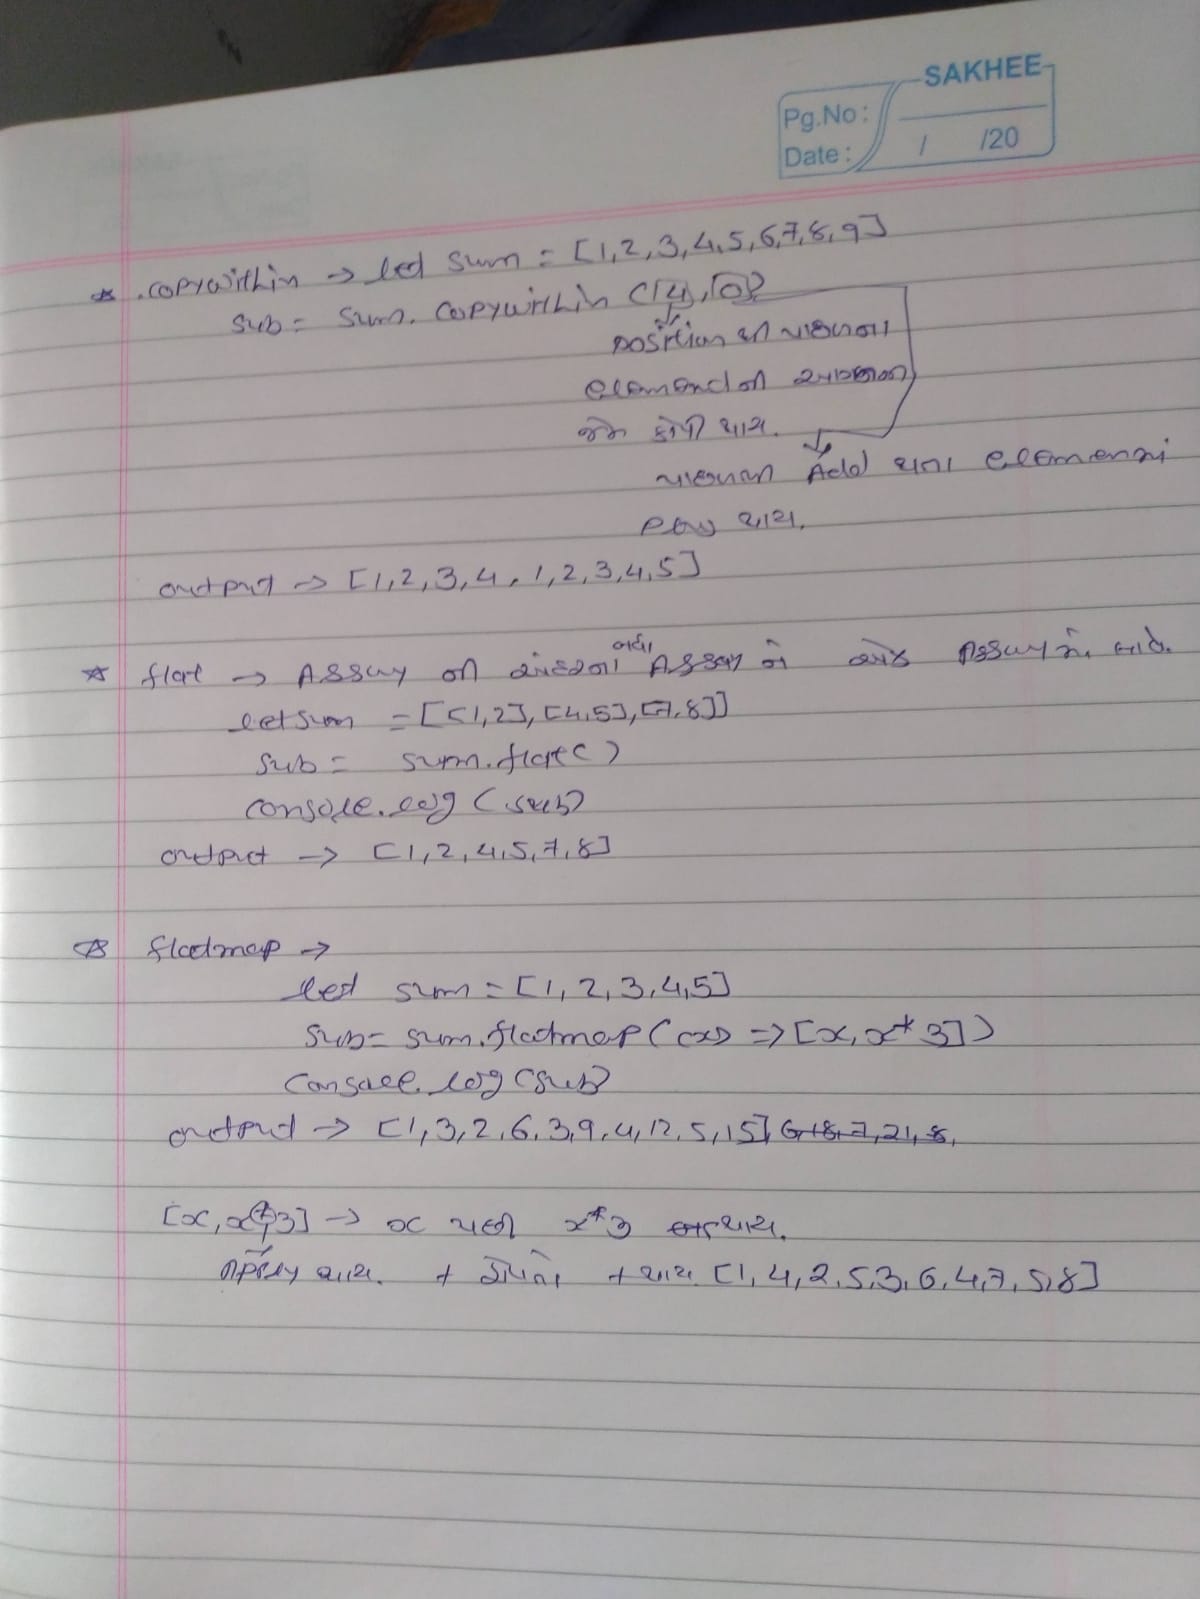 SAKHEE
Pg.No:
Date: / /20
* .copywithin → let sum = [1,2,3,4,5,6,7,8,9]
sub = sum.copywithin (4,0)
position થી પાછળના
element ની
જેમ કોપી થાય.
પાછળના Add થતા element
થાય.
output → [1,2,3,4,1,2,3,4,5]
* flat → Array ની અંદરના બધા Array ને એક Array માં લાવે.
let sum = [[1,2],[4,5],[7,8]]
sub = sum.flat()
console.log (sub)
output → [1,2,4,5,7,8]
* flatmap →
let sum = [1,2,3,4,5]
sub = sum.flatmap((x) => [x, x*3])
console.log (sub)
output → [1,3,2,6,3,9,4,12,5,15] 6,18,7,21,8,
[x, x*3] → x પછી x*3 થાય.
મલ્ટીપ્લાય થાય. + + થાય [1,4,2,5,3,6,4,7,5,8]